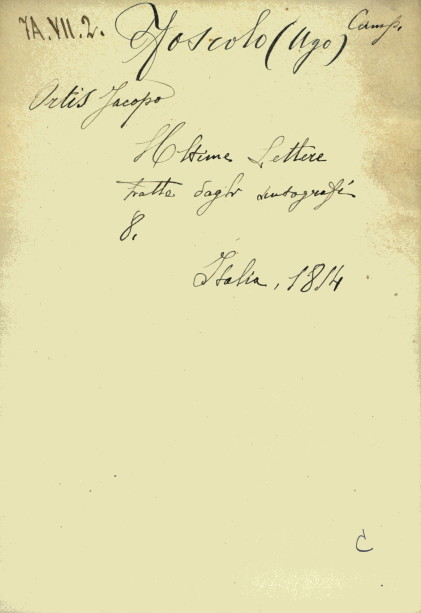 7A.VII.2. Foscolo (Ugo) Camp.
Ortis Jacopo
Ultime Lettere
tratte dagli autografi
8.
Italia, 1814
C